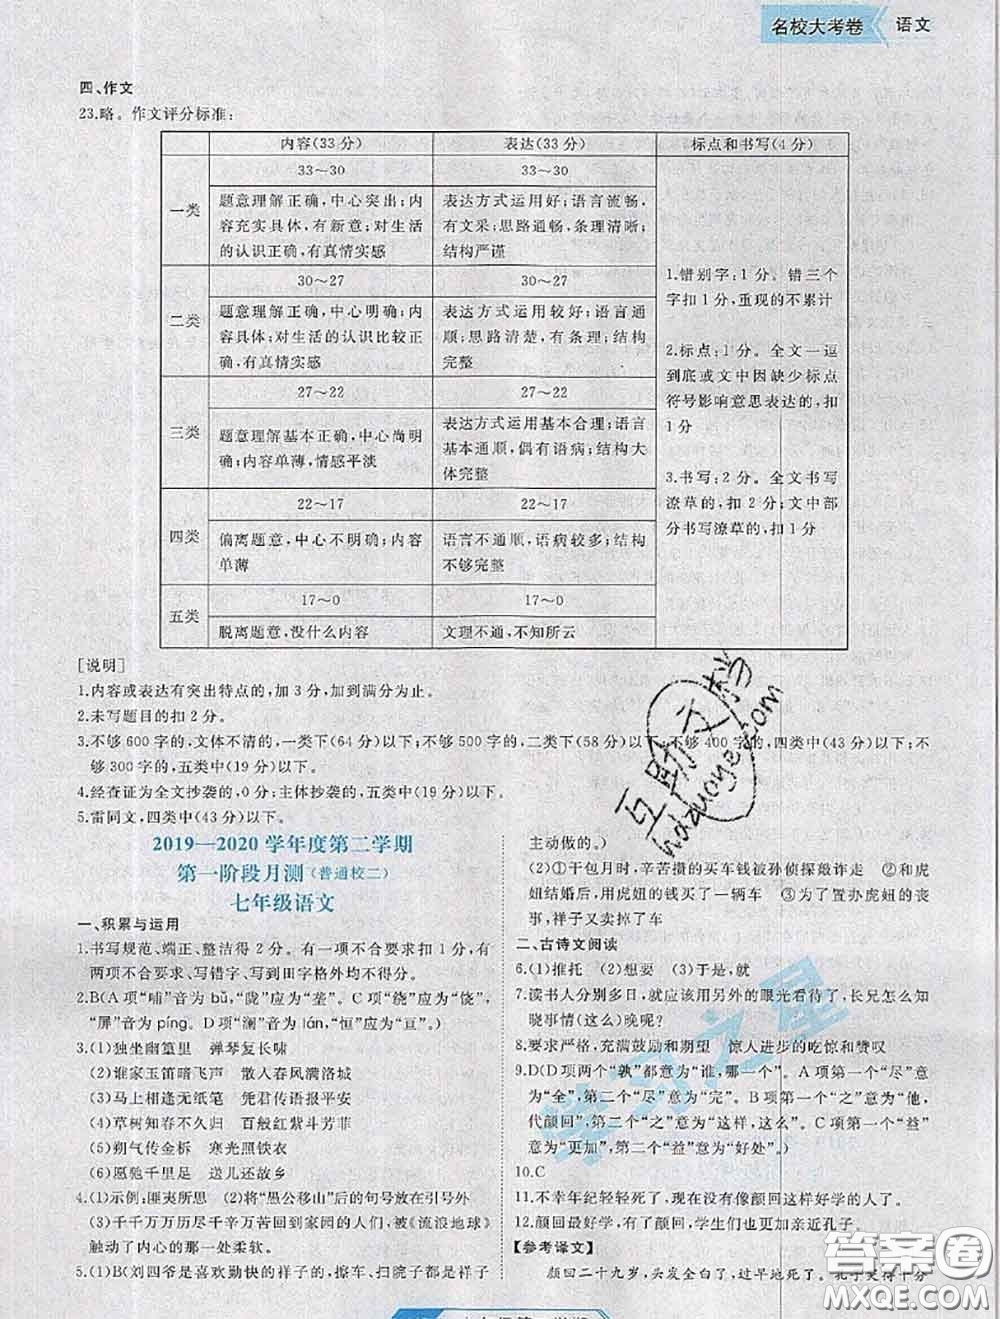 名校大考卷 语文
四、作文
23.略。作文评分标准:
内容(33分) 表达(33分) 标点和书写(4分)
一类
33～30 33～30
题意理解正确,中心突出;内
容充实具体,有新意;对生活
的认识正确,有真情实感
表达方式运用好;语言流畅,
有文采;思路通畅,条理清晰;
结构严谨
二类
30～27 30～27
题意理解正确,中心明确;内
容具体;对生活的认识比较正
确,有真情实感
表达方式运用较好;语言通
顺;思路清楚,有条理;结构
完整
三类
27～22 27～22
题意理解基本正确,中心尚明
确;内容单薄,情感平淡
表达方式运用基本合理;语言
基本通顺,偶有语病;结构大
体完整
四类
22～17 22～17
偏离题意,中心不明确;内容
单薄
语言不通顺,语病较多;结构
不够完整
五类
17～0 17～0
脱离题意,没什么内容 文理不通,不知所云
1.错别字:1分。错三个
字扣1分,重现的不累计
2.标点:1分。全文一逗
到底或文中因缺少标点
符号影响意思表达的,扣
1分
3.书写:2分。全文书写
潦草的,扣2分;文中部
分书写潦草的,扣1分
[说明]
1.内容或表达有突出特点的,加3分,加到满分为止。
2.未写题目的扣2分。
3.不够600字的,文体不清的,一类下(64分)以下;不够500字的,二类下(58分)以下;不够400字的,四类中(43分)以下;不
够300字的,五类中(19分)以下。
4.经查证为全文抄袭的,0分;主体抄袭的,五类中(19分)以下。
5.雷同文,四类中(43分)以下。
2019—2020学年度第二学期
第一阶段月测(普通校二)
七年级语文
一、积累与运用
1.书写规范、端正、整洁得2分。有一项不合要求扣1分,有
两项不合要求、写错字、写到田字格外均不得分。
2.B(A项“哺”音为bǔ,“陇”应为“垄”。C项“绕”应为“饶”,
“屏”音为píng。D项“澜”音为lán,“恒”应为“亘”。)
3.(1)独坐幽篁里 弹琴复长啸
(2)谁家玉笛暗飞声 散入春风满洛城
(3)马上相逢无纸笔 凭君传语报平安
(4)草树知春不久归 百般红紫斗芳菲
(5)朔气传金柝 寒光照铁衣
(6)愿驰千里足 送儿还故乡
4.(1)示例:匪夷所思 (2)将“愚公移山”后的句号放在引号外
(3)千千万万历尽千辛万苦回到家园的人们,被《流浪地球》
触动了内心的那一处柔软。
5.(1)B(刘四爷是喜欢勤快的样子的,擦车、扫院子都是祥子
主动做的。)
(2)①干包月时,辛苦攒的买车钱被孙侦探敲诈走 ②和虎
妞结婚后,用虎妞的钱买了一辆车 ③为了置办虎妞的丧
事,祥子又卖掉了车
二、古诗文阅读
6.(1)推托 (2)想要 (3)于是,就
7.读书人分别多日,就应该用另外的眼光看待了,长兄怎么知
晓事情(这么)晚呢?
8.要求严格,充满鼓励和期望 惊人进步的吃惊和赞叹
9.D(D项两个“孰”都意为“谁,哪一个”。A项第一个“尽”意
为“全”,第二个“尽”意为“完”。B项第一个“之”意为“他,
代颜回”,第二个“之”意为“的”。C项第一个“益”
意为“更加”,第二个“益”意为“好处”。)
10.C
11.不幸年纪轻轻死了,现在没有像颜回这样好学的人了。
12.颜回最好学,有了颜回,学生们也更加亲近孔子。
【参考译文】
颜回二十九岁,头发全白了,过早地死了。孔子哭得十分
互助文档
hdzuoye.com
学习之星
答案圈
MXQE.COM